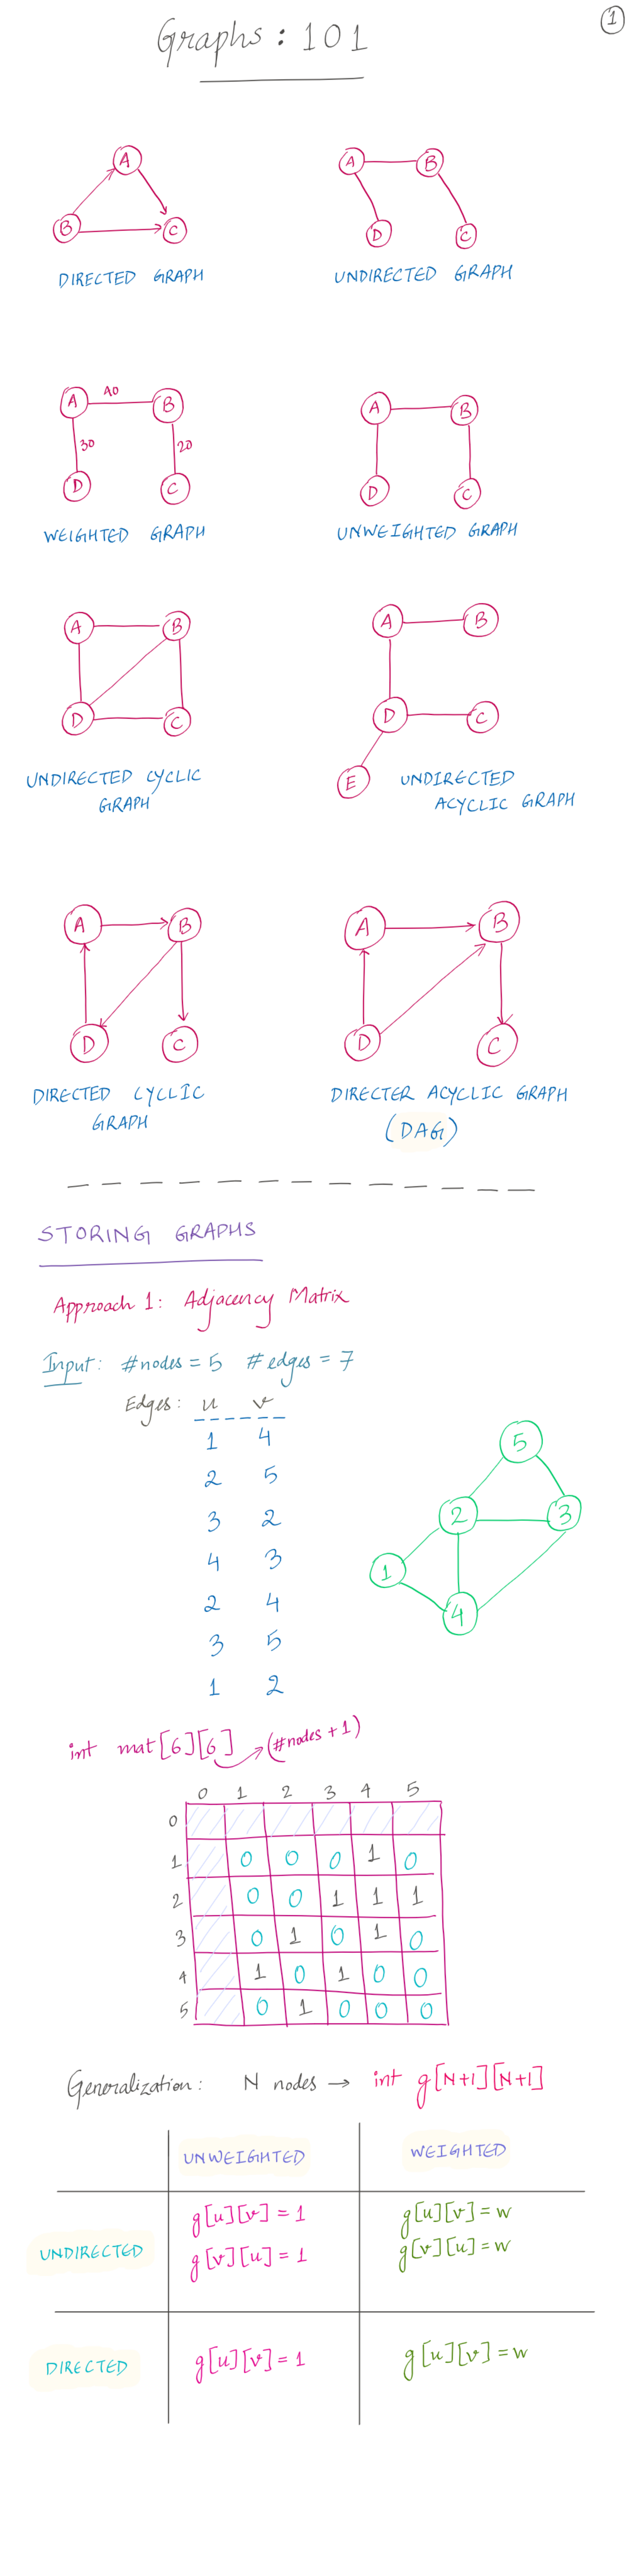 Graphs : 101
1
A
B
C
DIRECTED GRAPH
A
B
D
C
UNDIRECTED GRAPH
A
40
B
30
20
D
C
WEIGHTED GRAPH
A
B
D
C
UNWEIGHTED GRAPH
A
B
D
C
UNDIRECTED CYCLIC
GRAPH
A
B
D
C
E
UNDIRECTED
ACYCLIC GRAPH
A
B
D
C
DIRECTED CYCLIC
GRAPH
A
B
D
C
DIRECTER ACYCLIC GRAPH
(DAG)
STORING GRAPHS
Approach 1: Adjacency Matrix
Input: #nodes = 5 #edges = 7
Edges: u v
1 4
2 5
3 2
4 3
2 4
3 5
1 2
5
2
3
1
4
int mat[6][6] (#nodes + 1)
0 1 2 3 4 5
0
1 0 0 0 1 0
2 0 0 1 1 1
3 0 1 0 1 0
4 1 0 1 0 0
5 0 1 0 0 0
Generalization: N nodes → int g[N+1][N+1]
UNWEIGHTED WEIGHTED
UNDIRECTED
g[u][v] = 1
g[v][u] = 1
g[u][v] = w
g[v][u] = w
DIRECTED
g[u][v] = 1
g[u][v] = w